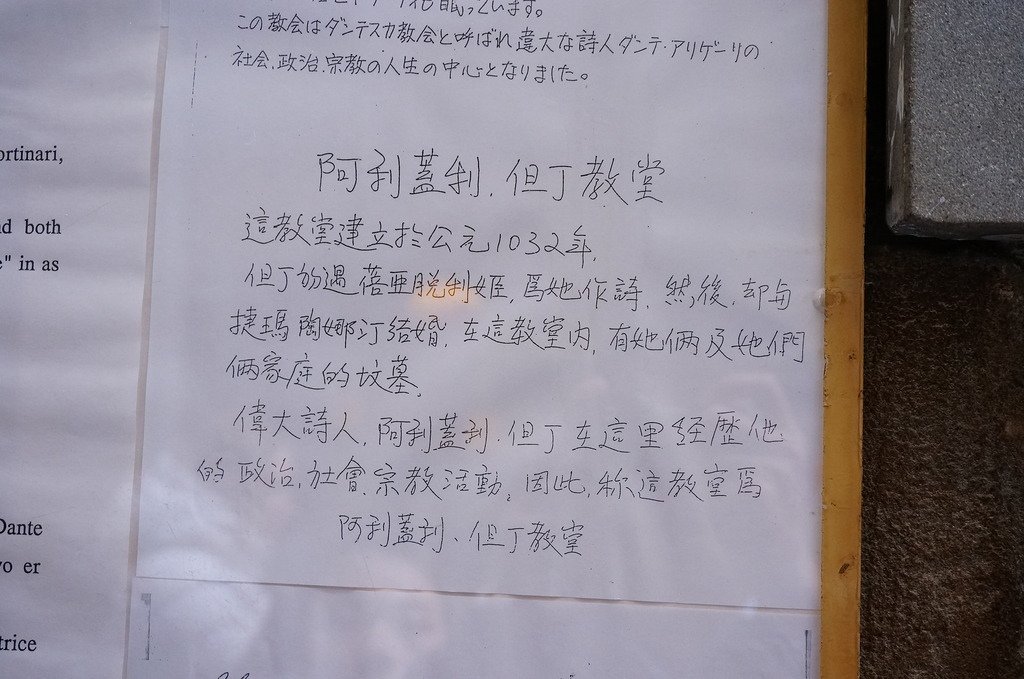 眠っています。
この教会はダンテスカ教会と呼ばれ偉大な詩人ダンテ・アリゲーリの
社会、政治、宗教の人生の中心となりました。
阿利蓋利、但丁教堂
這教堂建立於公元1032年,
但丁初遇蓓亞脱利姬,爲她作詩,然後,却与
捷瑪陶娜汀结婚,在這教堂内,有她倆及她們
倆家庭的坟墓,
偉大詩人,阿利蓋利、但丁在這里经歷他
的政治,社會,宗教活動。因此,称這教堂爲
阿利蓋利、但丁教堂
ortinari,
d both
e" in as
Dante
o er
trice